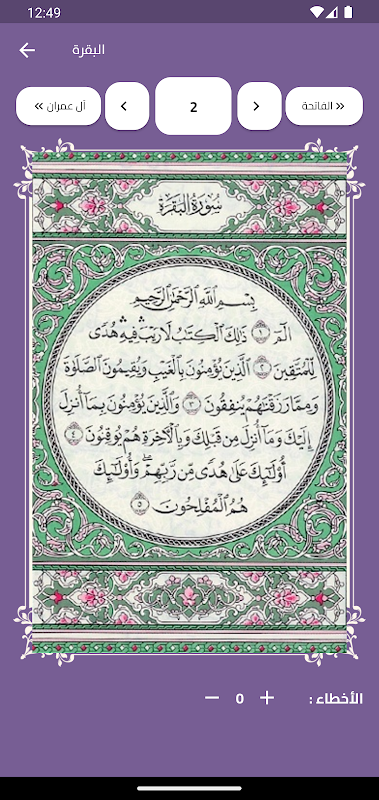 12:49
البقرة
الفاتحة »
2
« آل عمران
سُورَةُ الْبَقَرَةِ
بِسْمِ اللَّهِ الرَّحْمَٰنِ الرَّحِيمِ
الٓمٓ ۝١ ذَٰلِكَ الْكِتَٰبُ لَا رَيْبَ ۛ فِيهِ ۛ هُدًى
لِّلْمُتَّقِينَ ۝٢ الَّذِينَ يُؤْمِنُونَ بِالْغَيْبِ وَيُقِيمُونَ الصَّلَوٰةَ
وَمِمَّا رَزَقْنَٰهُمْ يُنفِقُونَ ۝٣ وَالَّذِينَ يُؤْمِنُونَ بِمَا أُنزِلَ
إِلَيْكَ وَمَا أُنزِلَ مِن قَبْلِكَ وَبِالْآخِرَةِ هُمْ يُوقِنُونَ ۝٤
أُو۟لَٰٓئِكَ عَلَىٰ هُدًى مِّن رَّبِّهِمْ ۖ وَأُو۟لَٰٓئِكَ
هُمُ الْمُفْلِحُونَ ۝٥
الأخطاء : + 0 −